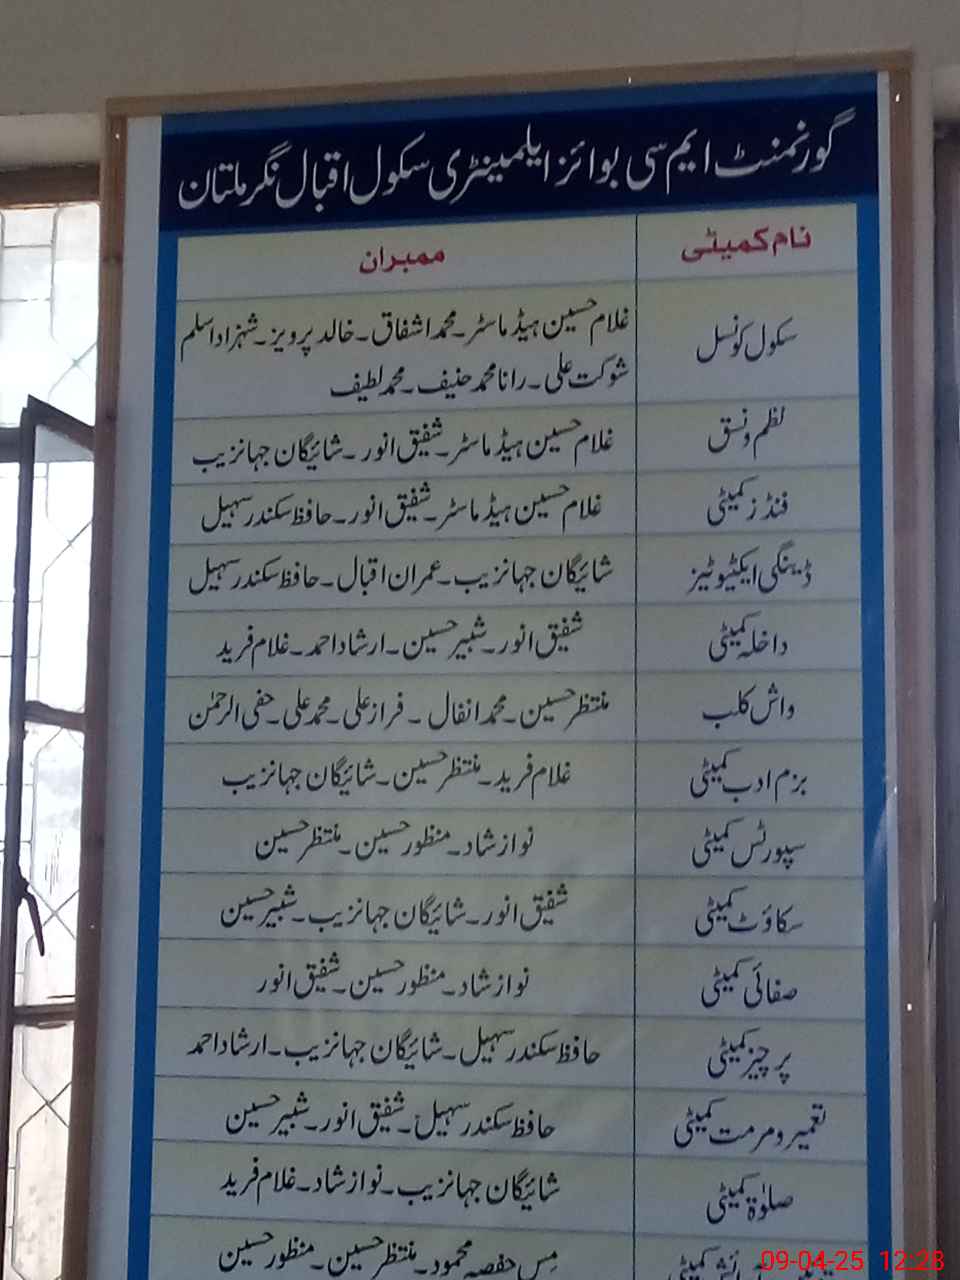 گورنمنٹ ایم سی بوائز ایلمینٹری سکول اقبال نگر ملتان
نام کمیٹی ممبران
سکول کونسل غلام حسین ہیڈ ماسٹر۔ محمد اشفاق۔ خالد پرویز۔ شہزاد اسلم
شوکت علی۔ رانا محمد حنیف۔ محمد لطیف
نظم و نسق غلام حسین ہیڈ ماسٹر۔ شفیق انور۔ شائیگان جہانزیب
فنڈز کمیٹی غلام حسین ہیڈ ماسٹر۔ شفیق انور۔ حافظ سکندر سہیل
ڈینگی ایکٹیوٹیز شائیگان جہانزیب۔ عمران اقبال۔ حافظ سکندر سہیل
داخلہ کمیٹی شفیق انور۔ شبیر حسین۔ ارشاد احمد۔ غلام فرید
واش کلب منتظر حسین۔ محمد انفال۔ فراز علی۔ محمد علی۔ حفی الرحمٰن
بزم ادب کمیٹی غلام فرید۔ منتظر حسین۔ شائیگان جہانزیب
سپورٹس کمیٹی نواز شاد۔ منظور حسین۔ منتظر حسین
سکاؤٹ کمیٹی شفیق انور۔ شائیگان جہانزیب۔ شبیر حسین
صفائی کمیٹی نواز شاد۔ منظور حسین۔ شفیق انور
پرچیز کمیٹی حافظ سکندر سہیل۔ شائیگان جہانزیب۔ ارشاد احمد
تعمیر و مرمت کمیٹی حافظ سکندر سہیل۔ شفیق انور۔ شبیر حسین
صلوٰۃ کمیٹی شائیگان جہانزیب۔ نواز شاد۔ غلام فرید
کمیٹی مس حفصہ محمود۔ منتظر حسین۔ منظور حسین
09-04-25 12:28